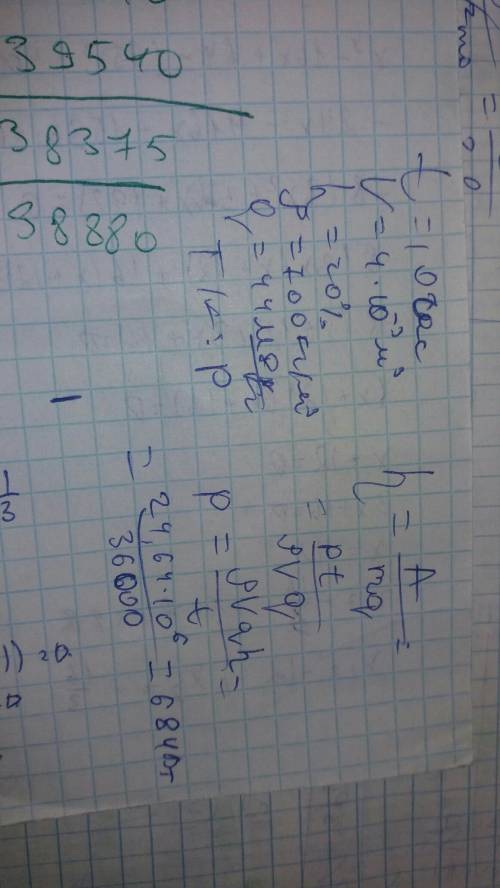 39540
38375
38880
t = 10 час
V = 4·10⁻³ м³
η = 20%
ρ = 700 кг/м³
q = 44
T/к: p
η = A/mq =
= pt/ρVq
p = ρVqη/t =
= 24,64·10⁶/36000 = 684Вт
1/3